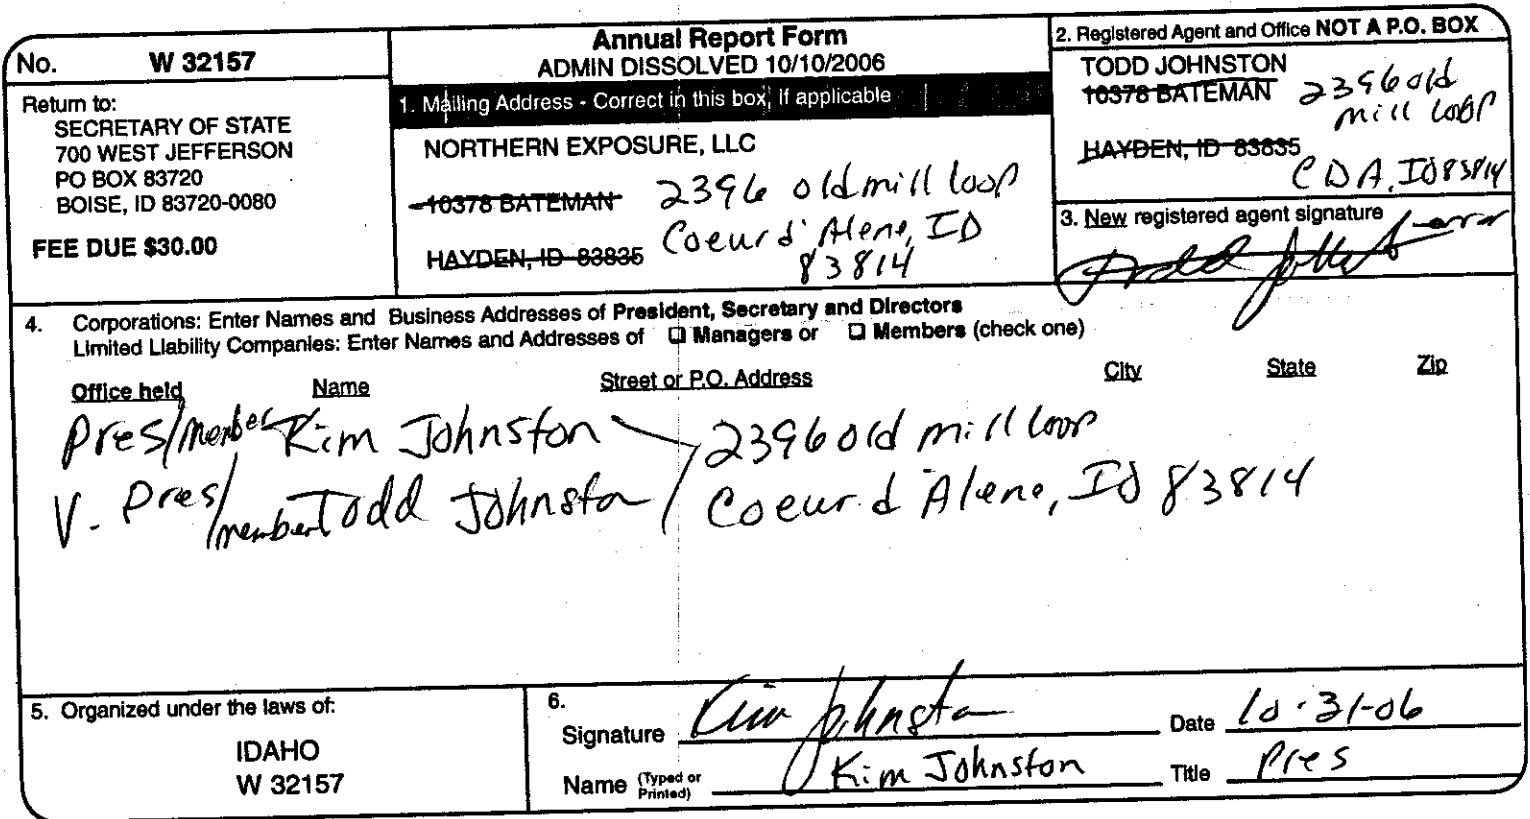 No. W 32157
Return to:
SECRETARY OF STATE
700 WEST JEFFERSON
PO BOX 83720
BOISE, ID 83720-0080
FEE DUE $30.00
Annual Report Form
ADMIN DISSOLVED 10/10/2006
1. Mailing Address - Correct in this box, if applicable
NORTHERN EXPOSURE, LLC
10378 BATEMAN 2396 old mill loop
HAYDEN, ID 83835 Coeur d'Alene, ID
83814
2. Registered Agent and Office NOT A P.O. BOX
TODD JOHNSTON
10378 BATEMAN 2396 old
mill loop
HAYDEN, ID 83835
CDA, ID 83814
3. New registered agent signature
4. Corporations: Enter Names and Business Addresses of President, Secretary and Directors
Limited Liability Companies: Enter Names and Addresses of ☐ Managers or ☐ Members (check one)
Office held Name Street or P.O. Address City State Zip
Pres/member Kim Johnston 2396 old mill loop
V. Pres/member Todd Johnston Coeur d'Alene, ID 83814
5. Organized under the laws of:
IDAHO
W 32157
6.
Signature Kim Johnston Date 10-31-06
Name (Typed or Printed) Kim Johnston Title Pres